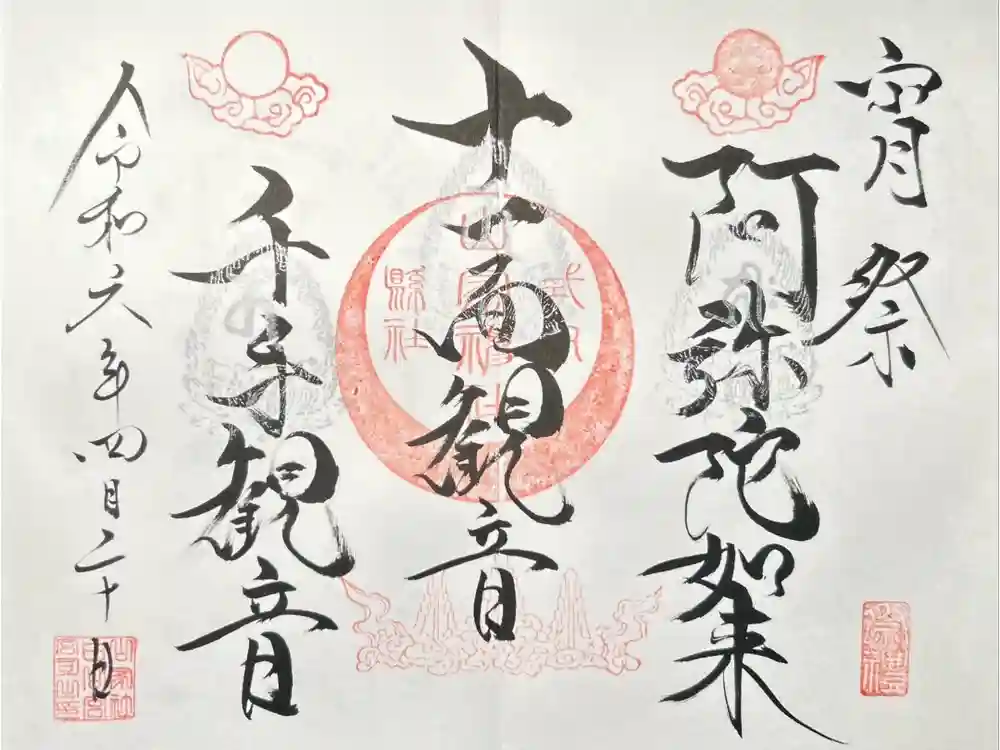 宵祭
阿弥陀如来
十一面観音
千手観音
令和六年四月二十日
山家神社
縣社
崇禮